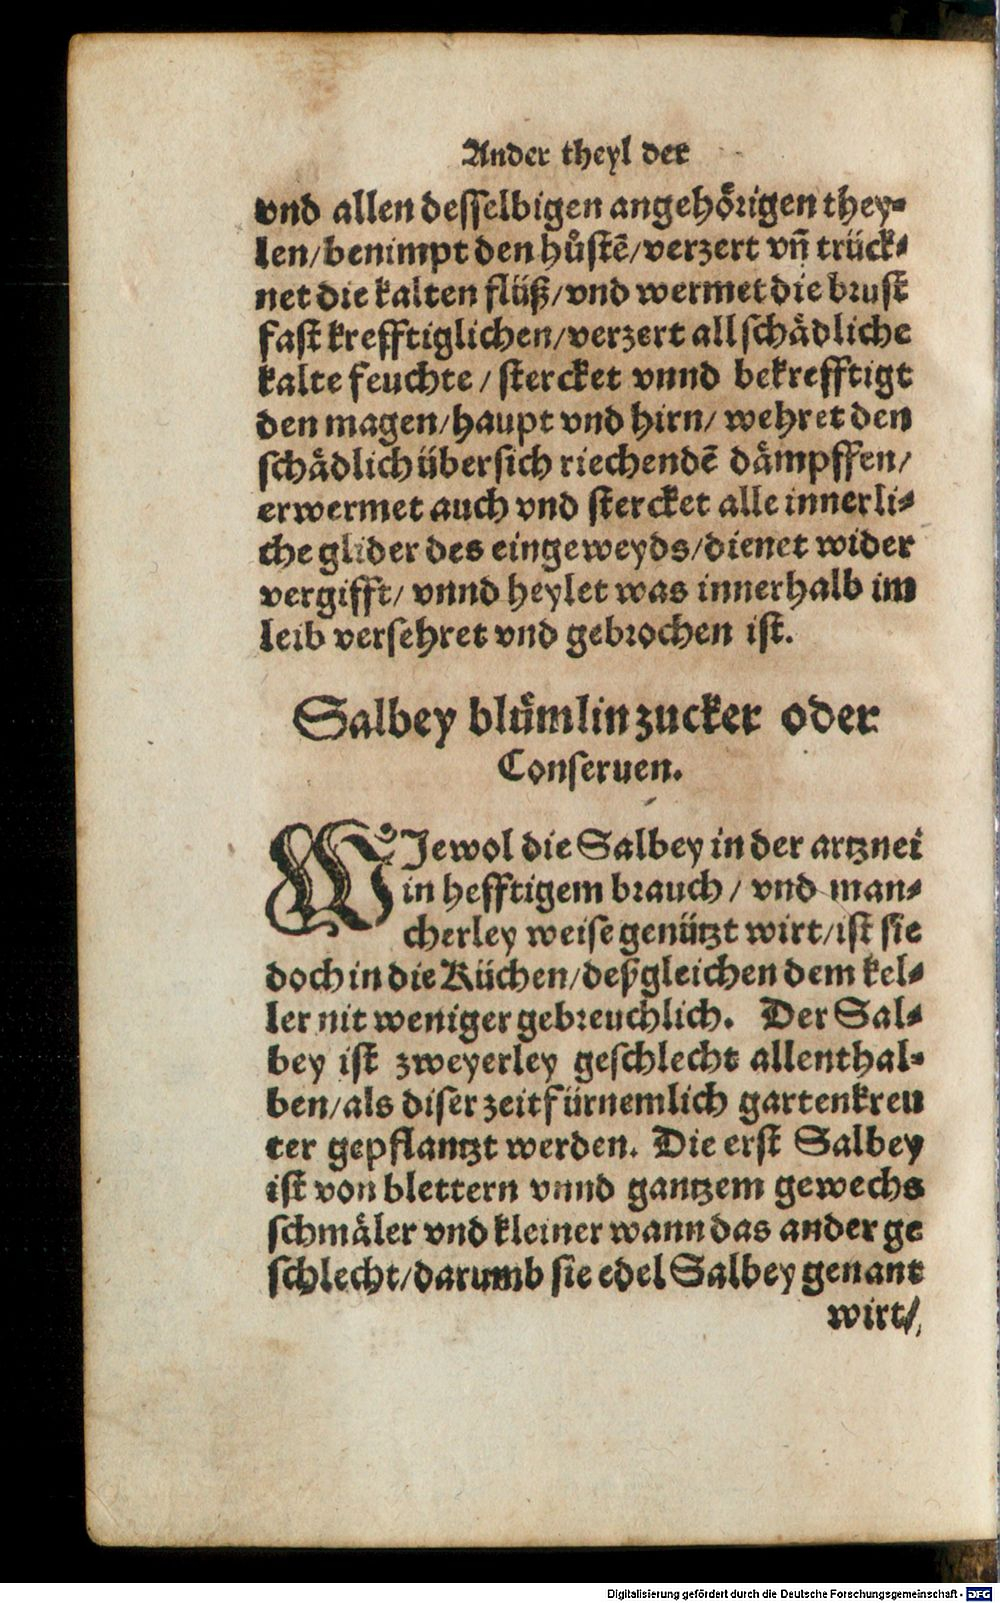 Ander theyl der
vnd allen desselbigen angehörigen they⸗
len/benimpt den hůstē/verzert vñ trück⸗
net die kalten flüß/vnd wermet die brust
fast krefftiglichen/verzert all schädliche
kalte feuchte / stercket vnnd bekrefftigt
den magen/haupt vnd hirn/ wehret den
schädlich übersich riechendē dämpffen/
erwermet auch vnd stercket alle innerli⸗
che glider des eingeweyds/dienet wider
vergifft/ vnnd heylet was innerhalb im
leib versehret vnd gebrochen ist.
Salbey blümlinzucker oder
Conseruen.
WJewol die Salbey in der artznei
in hefftigem brauch / vnd man⸗
cherley weise genützt wirt/ist sie
doch in die Küchen/deßgleichen dem kel⸗
ler nit weniger gebreuchlich. Der Sal⸗
bey ist zweyerley geschlecht allenthal⸗
ben/als diser zeit fürnemlich gartenkreu
ter gepflantzt werden. Die erst Salbey
ist von blettern vnnd gantzem gewechs
schmäler vnd kleiner wann das ander ge
schlecht/darumb sie edel Salbey genant
wirt/
Digitalisierung gefördert durch die Deutsche Forschungsgemeinschaft - DFG